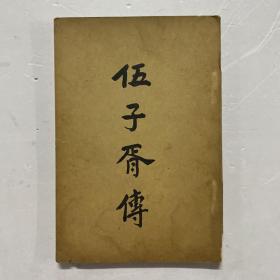 伍子胥傳